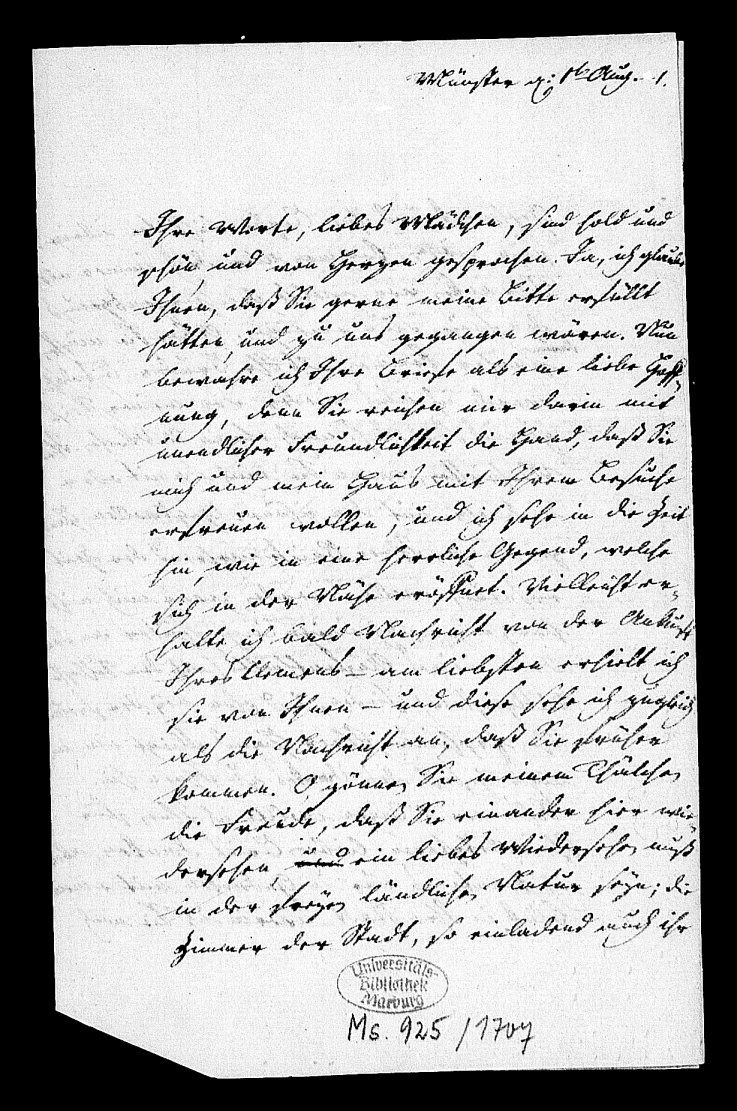 Münster d: 16 Aug. 1.
Ihre Worte, liebes Mädchen, sind hold und
schön und von Herzen gesprochen. Ja, ich glaube
Ihnen, daß Sie gerne meine Bitte erfüllt
hätten und zu uns gegangen wären. Nun
bewahre ich Ihre Briefe als eine liebe Hoff-
nung, denn Sie reichen mir darin mit
unendlicher Freundlichkeit die Hand, daß Sie
mich und mein Haus mit Ihrem Besuche
erfreuen wollen, und ich sehe in die Zeit
hin, wie in eine herrliche Gegend, welche
sich in der Nähe eröffnet. Vielleicht er-
halte ich bald Nachricht von der Ankunft
Ihres Clemens – am liebsten erhielt ich
sie von Ihnen – und diese sehe ich zugleich
als die Nachricht an, daß Sie früher
kommen. O gönnen Sie meinem Thälchen
die Freude, daß Sie einander hier wie-
dersehen, und ein liebes Wiedersehen muß
in der freyen ländlichen Natur seyn; die
Zimmer der Stadt, so einladend auch ihr
Universitäts-
Bibliothek
Marburg
Ms. 925/1707